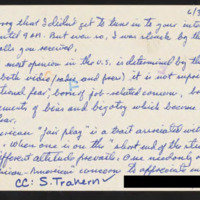 6/3
sorry that I didn't get to tune in to your inter
until 9 AM. But even so, I was struck by the
calls you received,
most opinion in the U.S. is determined by the
both video (  and prose) it is not impo
tional fear, born of job-related concern, bo
ements of bias and bigotry which become
fear.
merican "fair play" is a trait associated wit
. When one is on the "short end of the stick
different attitude prevails. One needs only
-American concern to appreciate
CC: S. Trahern